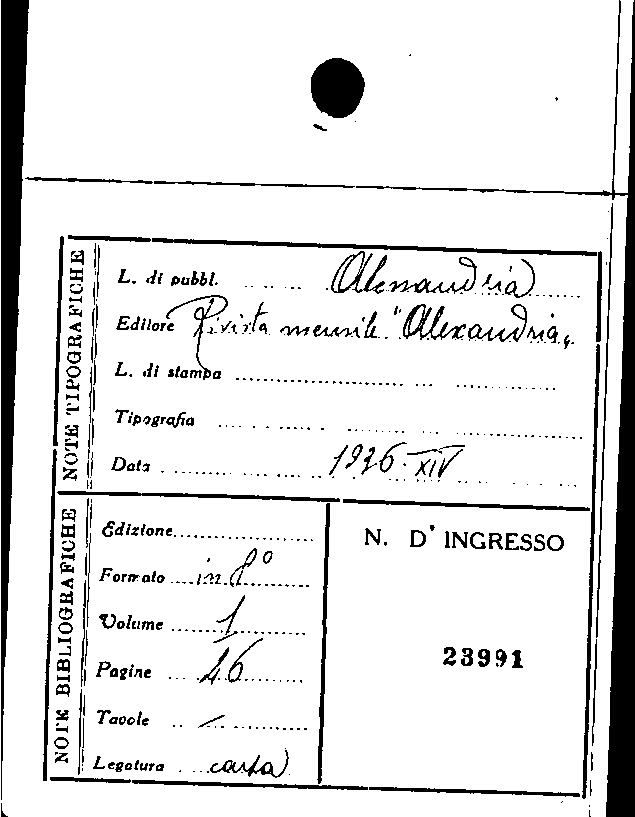 NOTE TIPOGRAFICHE
L. di pubbl. Alessandria
Editore Rivista mensile "Alexandria"
L. di stampa
Tipografia
Data 1936-XIV
NOTE BIBLIOGRAFICHE
Edizione
Formato in 8°
Volume 1
Pagine 26
Tavole /
Legatura carta
N. D' INGRESSO
23991